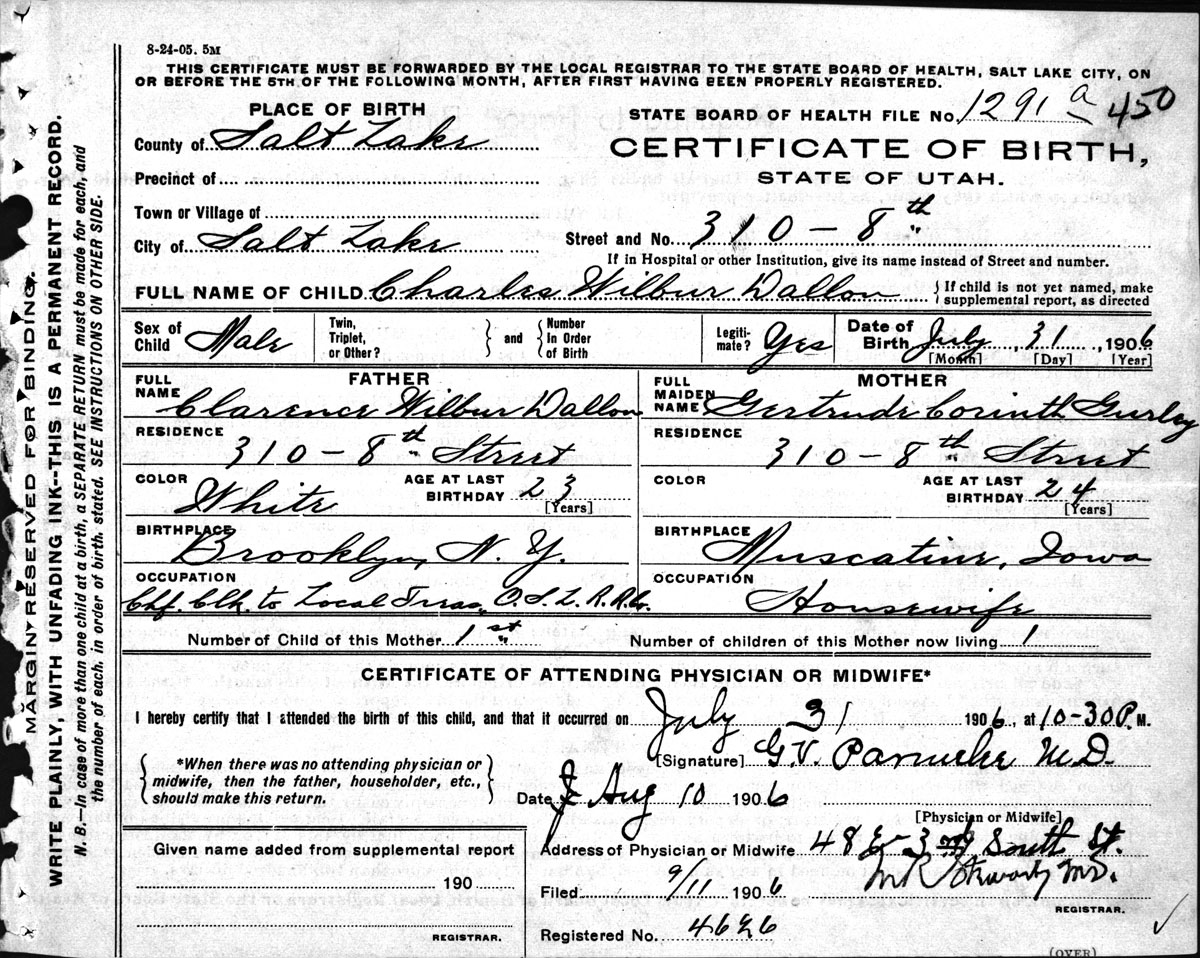 8-24-05. 5M
THIS CERTIFICATE MUST BE FORWARDED BY THE LOCAL REGISTRAR TO THE STATE BOARD OF HEALTH, SALT LAKE CITY, ON
OR BEFORE THE 5TH OF THE FOLLOWING MONTH, AFTER FIRST HAVING BEEN PROPERLY REGISTERED.
PLACE OF BIRTH
STATE BOARD OF HEALTH FILE No. 1291 a 450
County of Salt Lake
CERTIFICATE OF BIRTH,
Precinct of
STATE OF UTAH.
Town or Village of
City of Salt Lake Street and No. 310 - 8th
If in Hospital or other Institution, give its name instead of Street and number.
FULL NAME OF CHILD Charles Wilbur Dallon { If child is not yet named, make
supplemental report, as directed
Sex of Child Male Twin, Triplet, or Other? and Number In Order of Birth Legiti-mate? Yes Date of Birth July 31, 1906
[Month] [Day] [Year]
FATHER MOTHER
FULL NAME Clarence Wilbur Dallon FULL MAIDEN NAME Gertrude Corinth Gurley
RESIDENCE 310 - 8th Street RESIDENCE 310 - 8th Street
COLOR White AGE AT LAST BIRTHDAY 23 [Years] COLOR AGE AT LAST BIRTHDAY 24 [Years]
BIRTHPLACE Brooklyn, N. Y. BIRTHPLACE Muscatine, Iowa
OCCUPATION Chf. Clk. to Local Treas., O. S. L. R. R. Co. OCCUPATION Housewife
Number of Child of this Mother 1st Number of children of this Mother now living 1
CERTIFICATE OF ATTENDING PHYSICIAN OR MIDWIFE*
I hereby certify that I attended the birth of this child, and that it occurred on July 31 1906, at 10-30 P. M.
*When there was no attending physician or
midwife, then the father, householder, etc.,
should make this return.
[Signature] G. V. M.D.
Date Aug 10 1906
[Physician or Midwife]
Address of Physician or Midwife 48 E - 3rd South St.
Given name added from supplemental report
190
REGISTRAR.
Filed 9/11 1906 M.D.
REGISTRAR.
Registered No. 4626
(OVER)
MARGIN RESERVED FOR BINDING.
WRITE PLAINLY, WITH UNFADING INK--THIS IS A PERMANENT RECORD.
N. B.—In case of more than one child at a birth, a SEPARATE RETURN must be made for each, and
the number of each, in order of birth, stated. SEE INSTRUCTIONS ON OTHER SIDE.